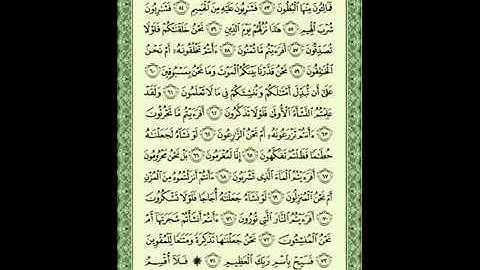 فَمَالِـُٔونَ مِنْهَا ٱلْبُطُونَ ٥٣ فَشَٰرِبُونَ عَلَيْهِ مِنَ ٱلْحَمِيمِ ٥٤ فَشَٰرِبُونَ
شُرْبَ ٱلْهِيمِ ٥٥ هَٰذَا نُزُلُهُمْ يَوْمَ ٱلدِّينِ ٥٦ نَحْنُ خَلَقْنَٰكُمْ فَلَوْلَا
تُصَدِّقُونَ ٥٧ أَفَرَءَيْتُم مَّا تُمْنُونَ ٥٨ ءَأَنتُمْ تَخْلُقُونَهُۥٓ أَمْ نَحْنُ
ٱلْخَٰلِقُونَ ٥٩ نَحْنُ قَدَّرْنَا بَيْنَكُمُ ٱلْمَوْتَ وَمَا نَحْنُ بِمَسْبُوقِينَ ٦٠
عَلَىٰٓ أَن نُّبَدِّلَ أَمْثَٰلَكُمْ وَنُنشِئَكُمْ فِى مَا لَا تَعْلَمُونَ ٦١ وَلَقَدْ
عَلِمْتُمُ ٱلنَّشْأَةَ ٱلْأُولَىٰ فَلَوْلَا تَذَكَّرُونَ ٦٢ أَفَرَءَيْتُم مَّا تَحْرُثُونَ
٦٣ ءَأَنتُمْ تَزْرَعُونَهُۥٓ أَمْ نَحْنُ ٱلزَّٰرِعُونَ ٦٤ لَوْ نَشَآءُ لَجَعَلْنَٰهُ
حُطَٰمًا فَظَلْتُمْ تَفَكَّهُونَ ٦٥ إِنَّا لَمُغْرَمُونَ ٦٦ بَلْ نَحْنُ مَحْرُومُونَ
٦٧ أَفَرَءَيْتُمُ ٱلْمَآءَ ٱلَّذِى تَشْرَبُونَ ٦٨ ءَأَنتُمْ أَنزَلْتُمُوهُ مِنَ ٱلْمُزْنِ
أَمْ نَحْنُ ٱلْمُنزِلُونَ ٦٩ لَوْ نَشَآءُ جَعَلْنَٰهُ أُجَاجًا فَلَوْلَا تَشْكُرُونَ
٧٠ أَفَرَءَيْتُمُ ٱلنَّارَ ٱلَّتِى تُورُونَ ٧١ ءَأَنتُمْ أَنشَأْتُمْ شَجَرَتَهَآ أَمْ
نَحْنُ ٱلْمُنشِـُٔونَ ٧٢ نَحْنُ جَعَلْنَٰهَا تَذْكِرَةً وَمَتَٰعًا لِّلْمُقْوِينَ
٧٣ فَسَبِّحْ بِٱسْمِ رَبِّكَ ٱلْعَظِيمِ ٧٤ ۞ فَلَآ أُقْسِمُ